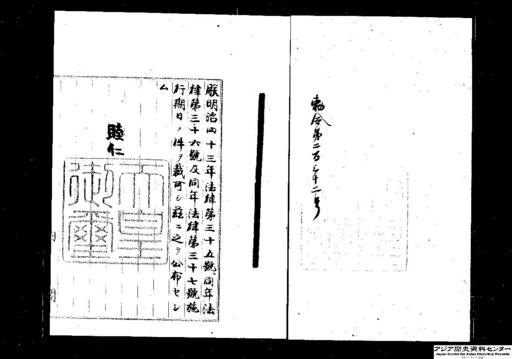 勅令第二百三十二号
朕明治四十三年法律第三十五號、同年法
律第三十六號及同年法律第三十七號施
行期日ノ件ヲ裁可シ茲ニ之ヲ公布セシ
ム
睦仁
天皇御璽
アジア歴史資料センター
Japan Center for Asian Historical Records